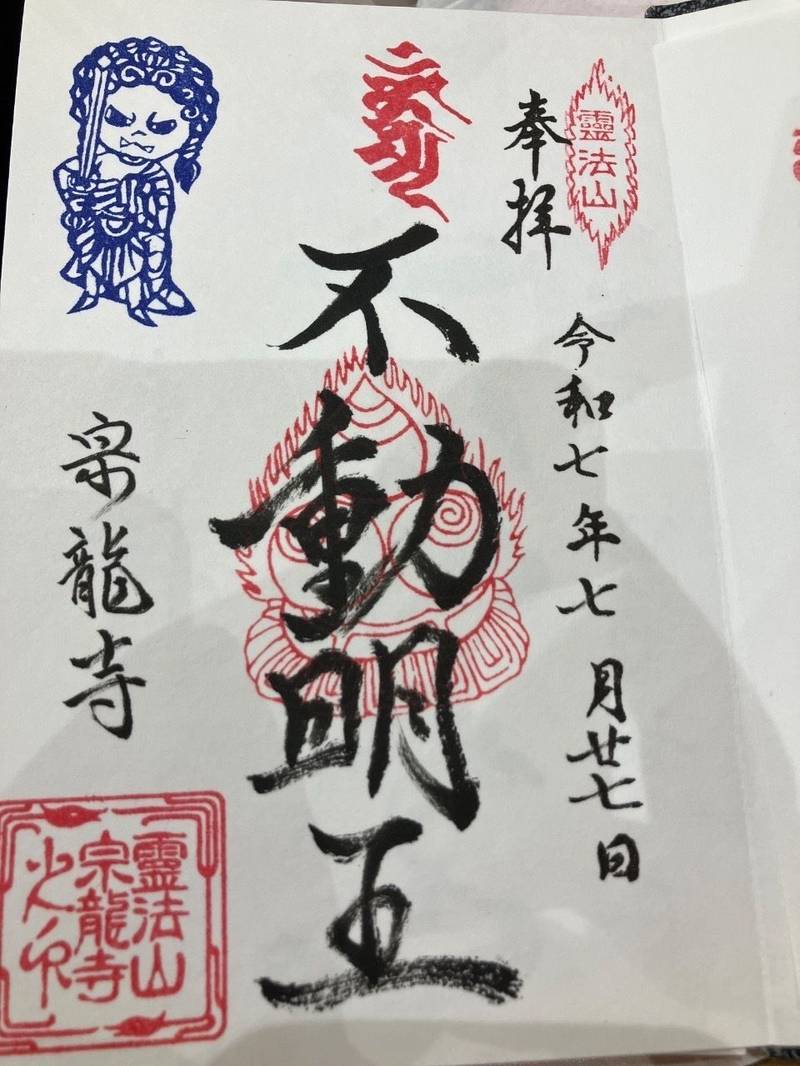 靈法山
奉拝
令和七年七月廿七日
不動明王
宗龍寺
靈法山
宗龍寺
之印